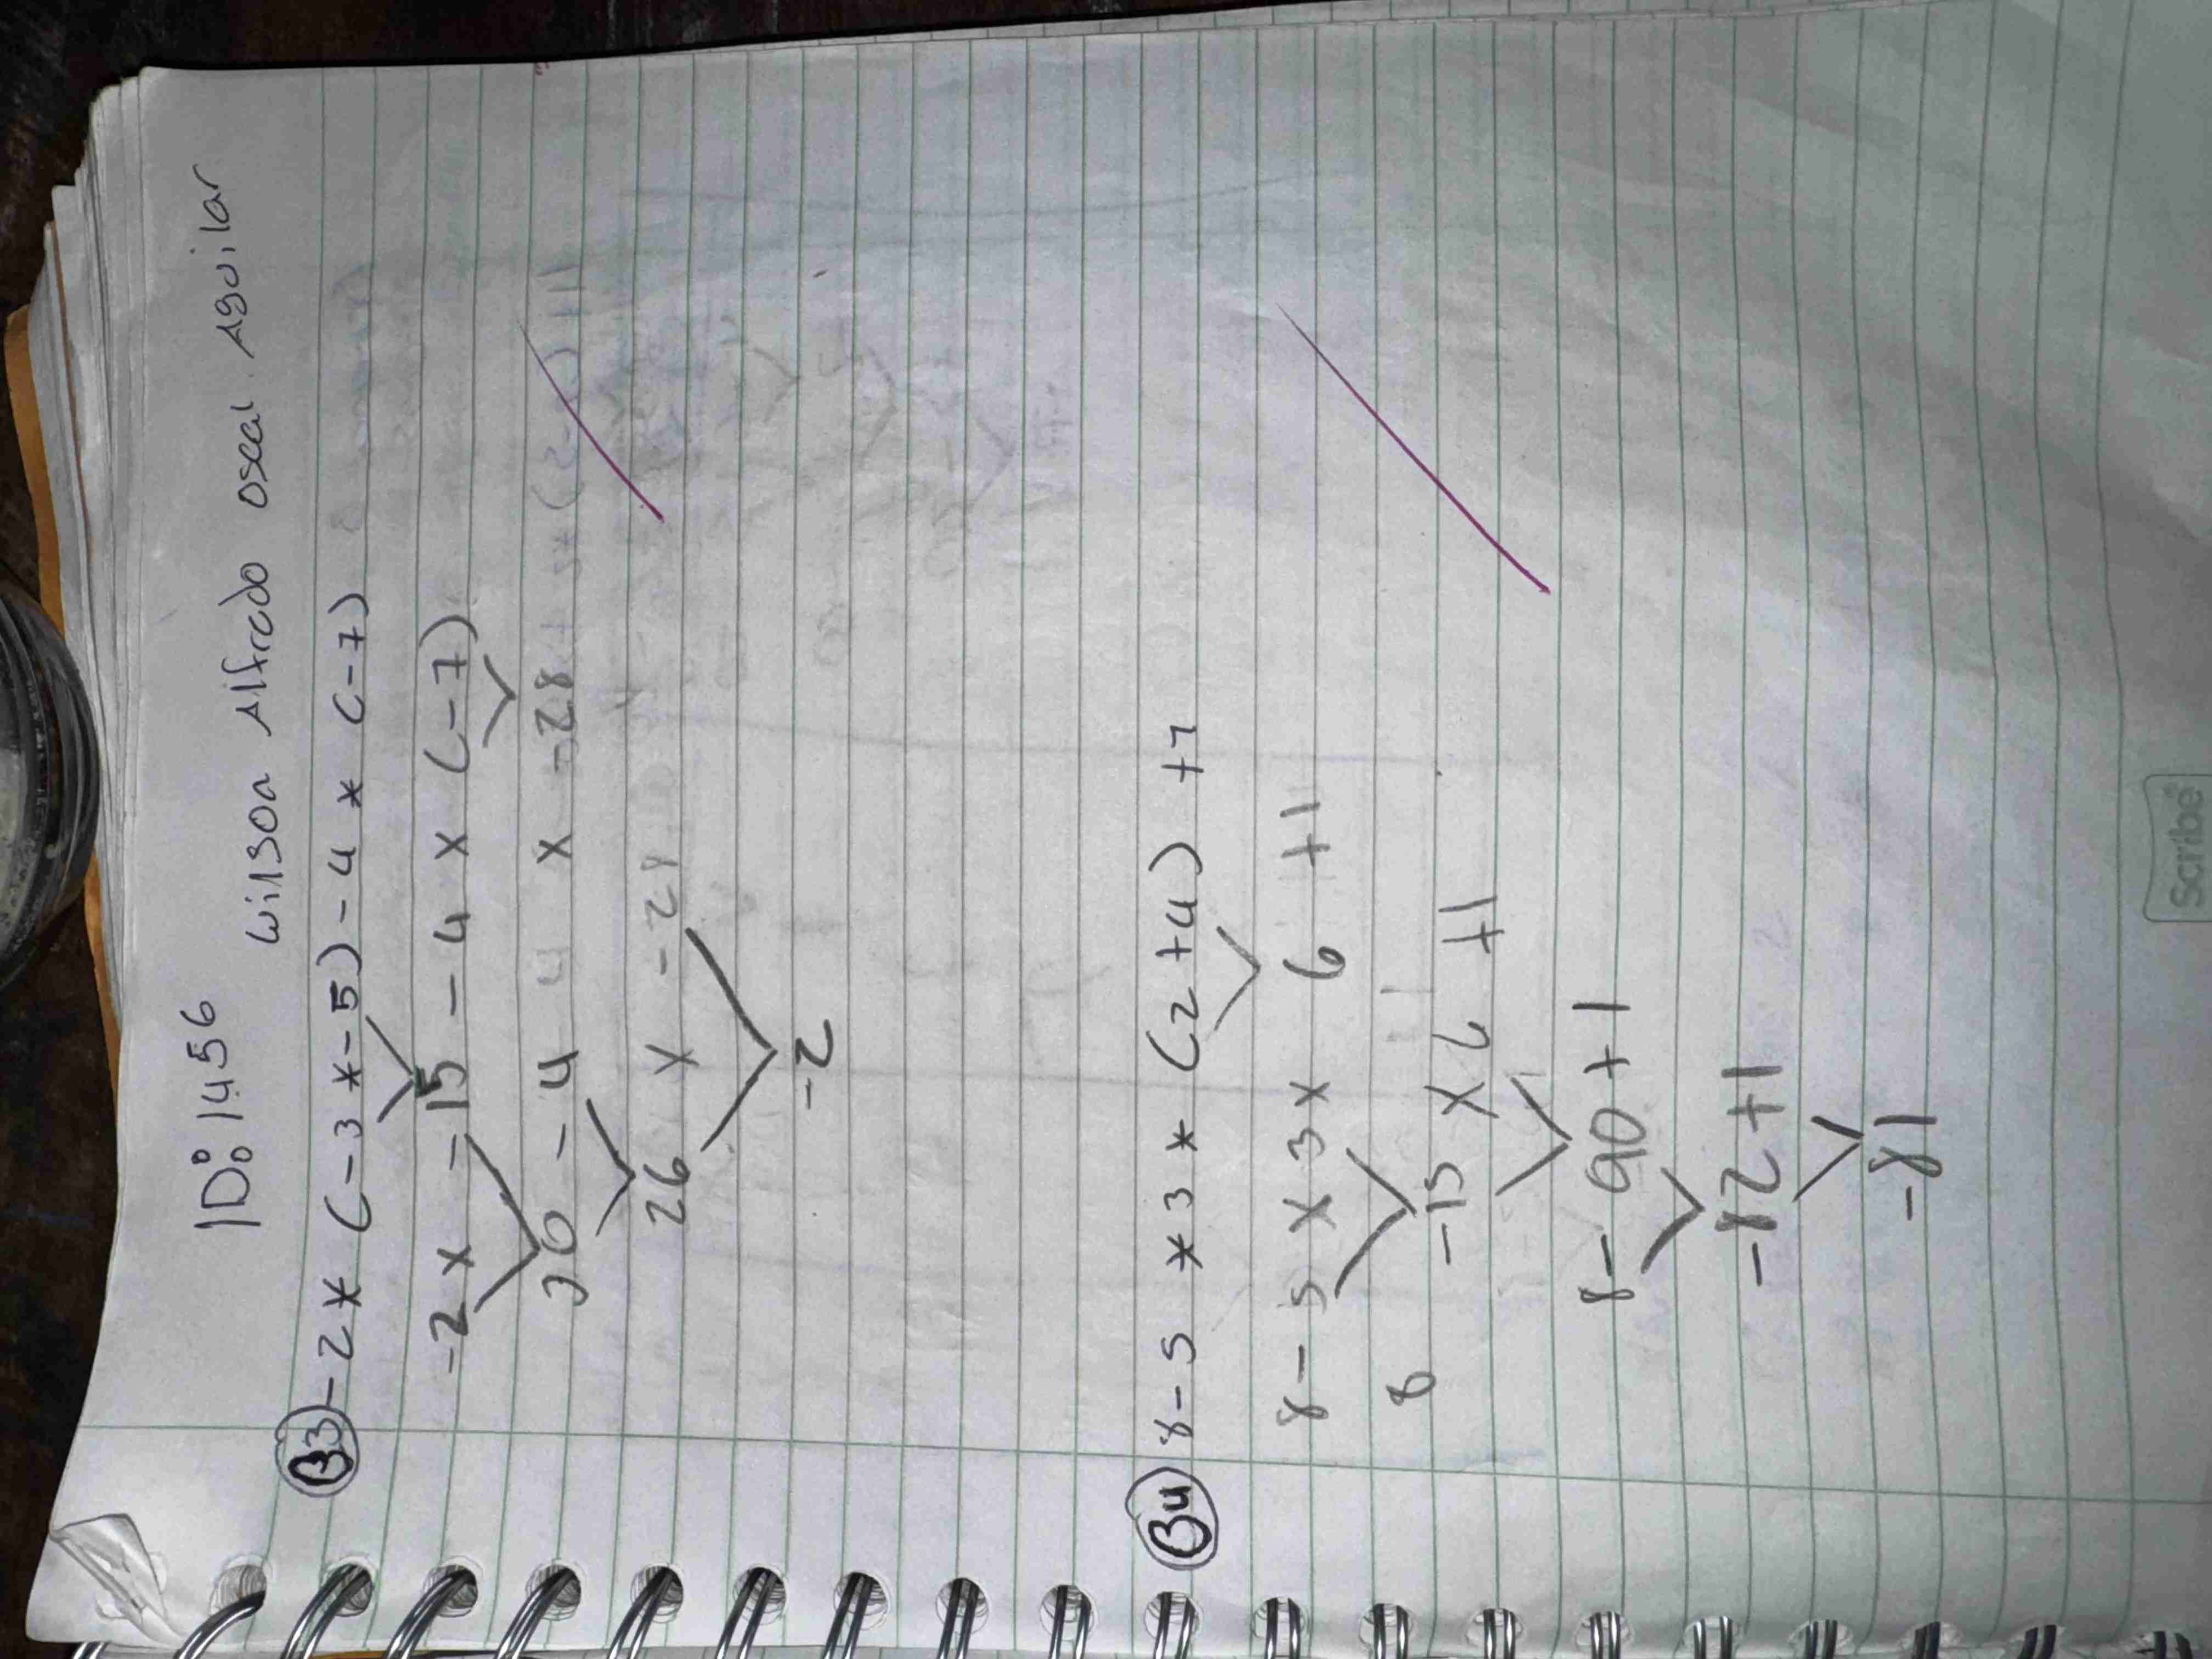 ID: 1456
Wilson Alfredo oseal Aguilar
B3 -2 * (-3 * -5) - 4 * (-7)
-2 x -15 - 4 x (-7)
30 - 4 x -28
26 x -28
-2
B4 8-5 * 3 * (2+4) +1
8 - 5 x 3 x 6 +1
8 -15 x 6 +1
8 - 90 + 1
-82 +1
-81
Scribe